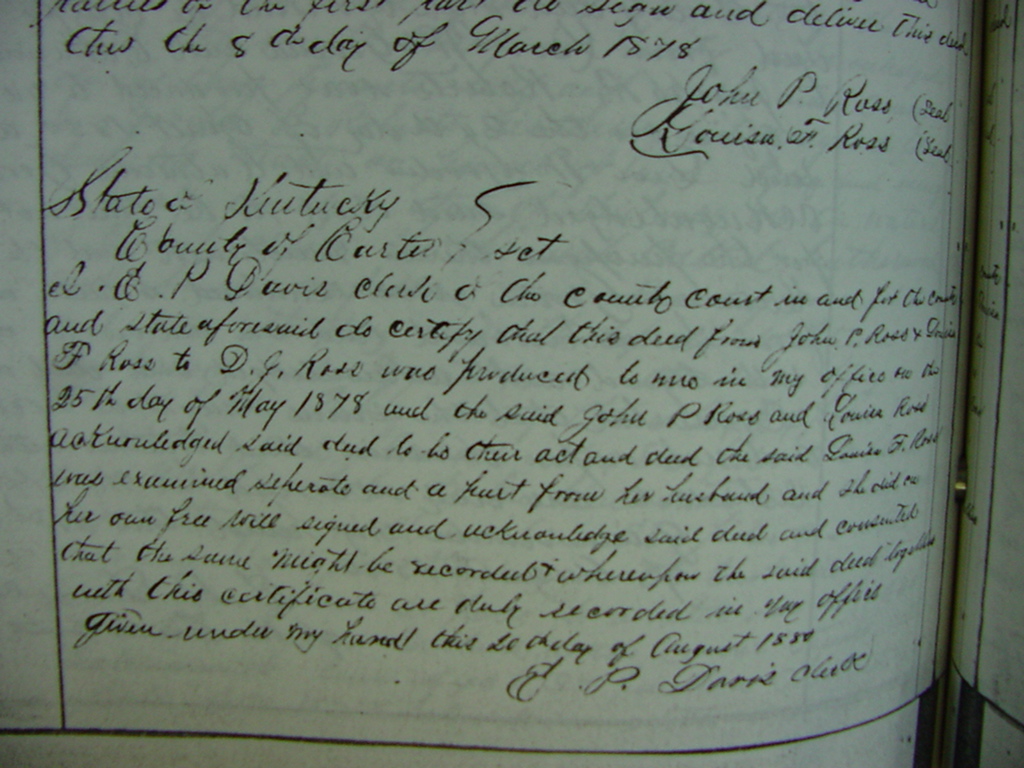 of the first part do sign and deliver this deed
this the 8th day of March 1878
John P. Ross (Seal
Louisa. F. Ross (Seal
State of Kentucky
County of Carter } sct
I. P Davis clerk of the county court in and for the county
and state aforesaid do certify that this deed from John P. Ross & Louisa
F Ross to D. G. Ross was produced to me in my office on the
25th day of May 1878 and the said John P Ross and Louisa Ross
acknowledged said deed to be their act and deed the said Louisa F. Ross
was examined seperate and a part from her husband and she did on
her own free will signed and acknowledge said deed and consented
that the same might be recorded & whereupon the said deed together
with this certificate are duly recorded in my office
Given under my hand this 20th day of August 1880
P. Davis clerk